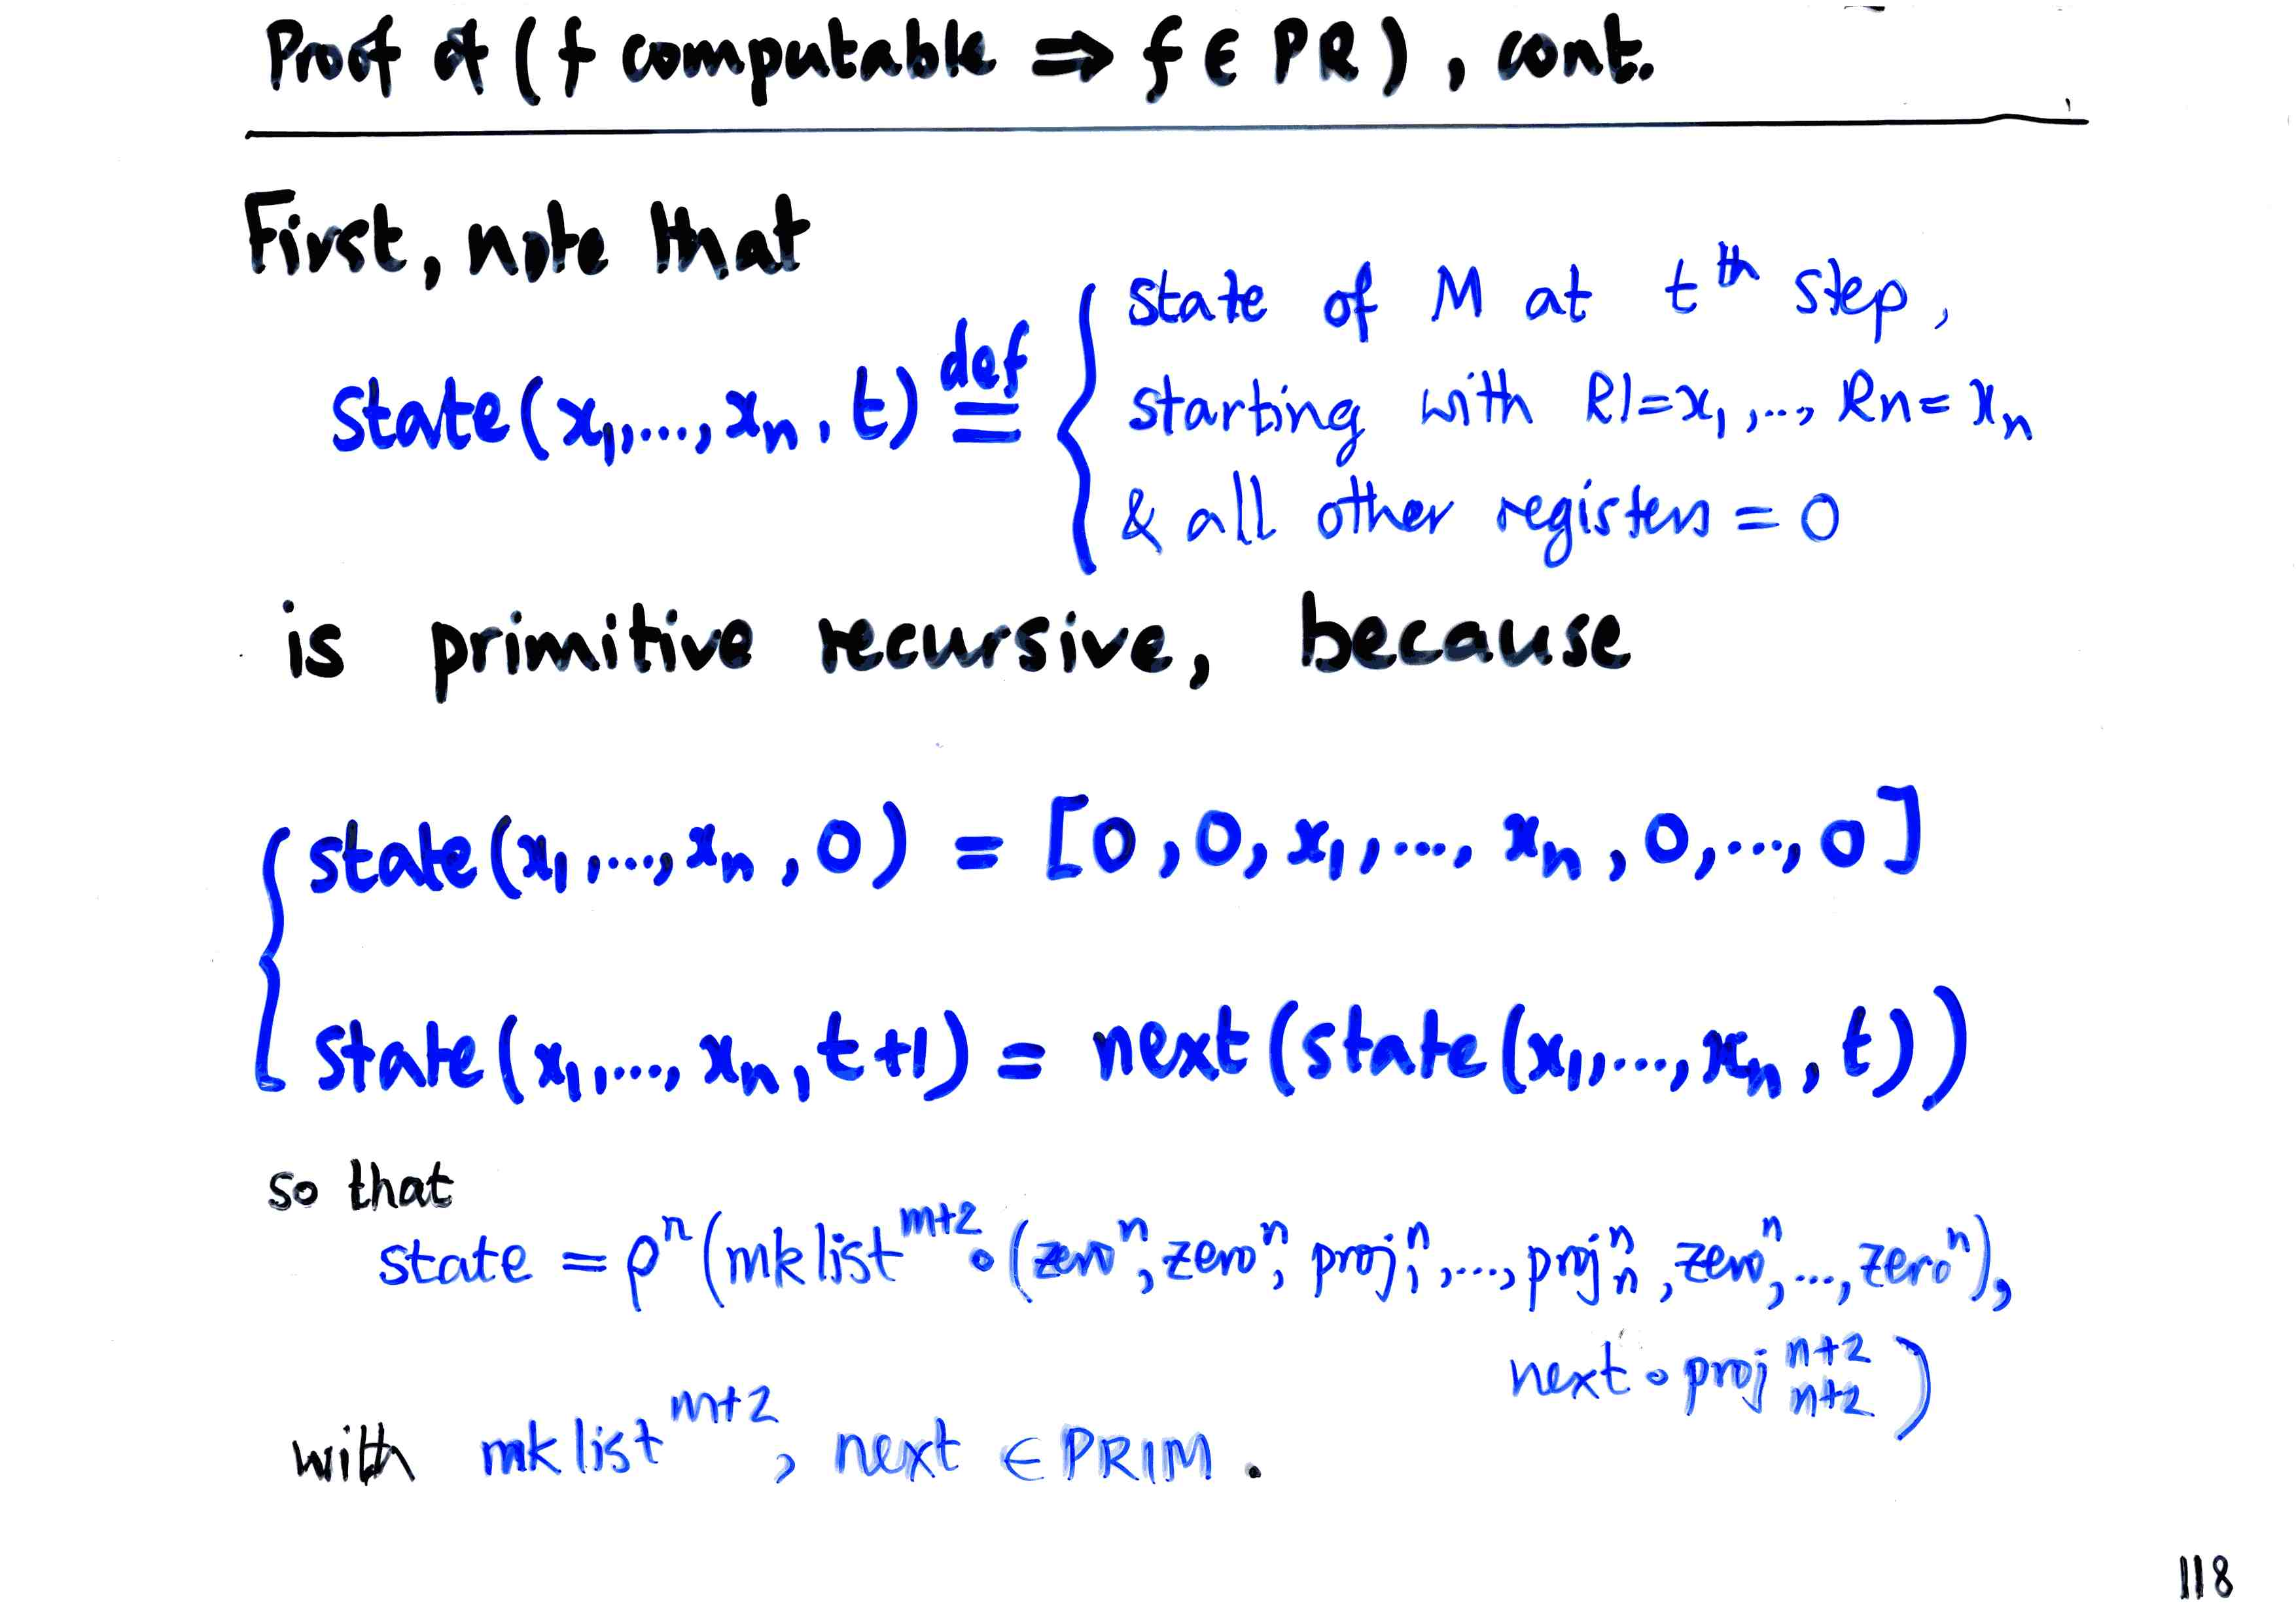 Proof of (f computable ⇒ f ∈ PR), cont.
First, note that
state(x₁,...,xₙ,t) def= { state of M at tᵗʰ step,
starting with R1=x₁,..., Rn=xₙ
& all other registers = 0
is primitive recursive, because
{ state(x₁,...,xₙ,0) = [0,0,x₁,...,xₙ,0,...,0]
state(x₁,...,xₙ,t+1) = next(state(x₁,...,xₙ,t))
so that
state = ρⁿ(mklistᵐ⁺²∘(zeroⁿ,zeroⁿ,projⁿ₁,...,projⁿₙ,zeroⁿ,...,zeroⁿ),
next∘projⁿ⁺²ₙ₊₂)
with mklistᵐ⁺², next ∈ PRIM.
118